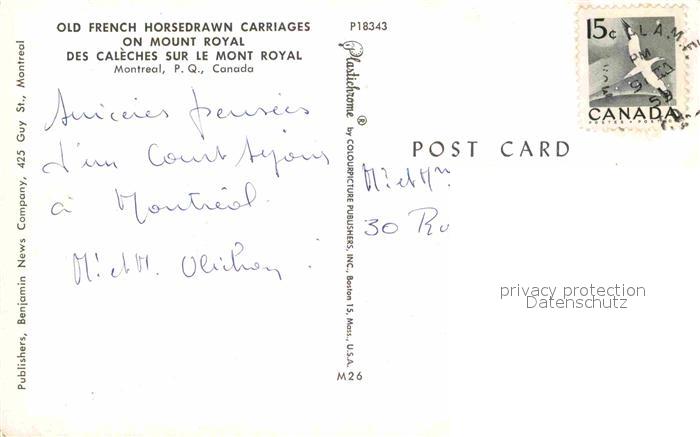 OLD FRENCH HORSEDRAWN CARRIAGES
ON MOUNT ROYAL
DES CALÈCHES SUR LE MONT ROYAL
Montreal, P. Q., Canada
Publishers, Benjamin News Company, 425 Guy St., Montreal
pensées
d'un Court séjour
à Montréal.
M. et M.
P18343
Plastichrome ® by COLOURPICTURE PUBLISHERS, INC., Boston 15, Mass., U.S.A.
M26
15c
PM
9
CANADA
POSTES - POSTAGE
POST CARD
M. et Mm.
30 Ru
privacy protection
Datenschutz